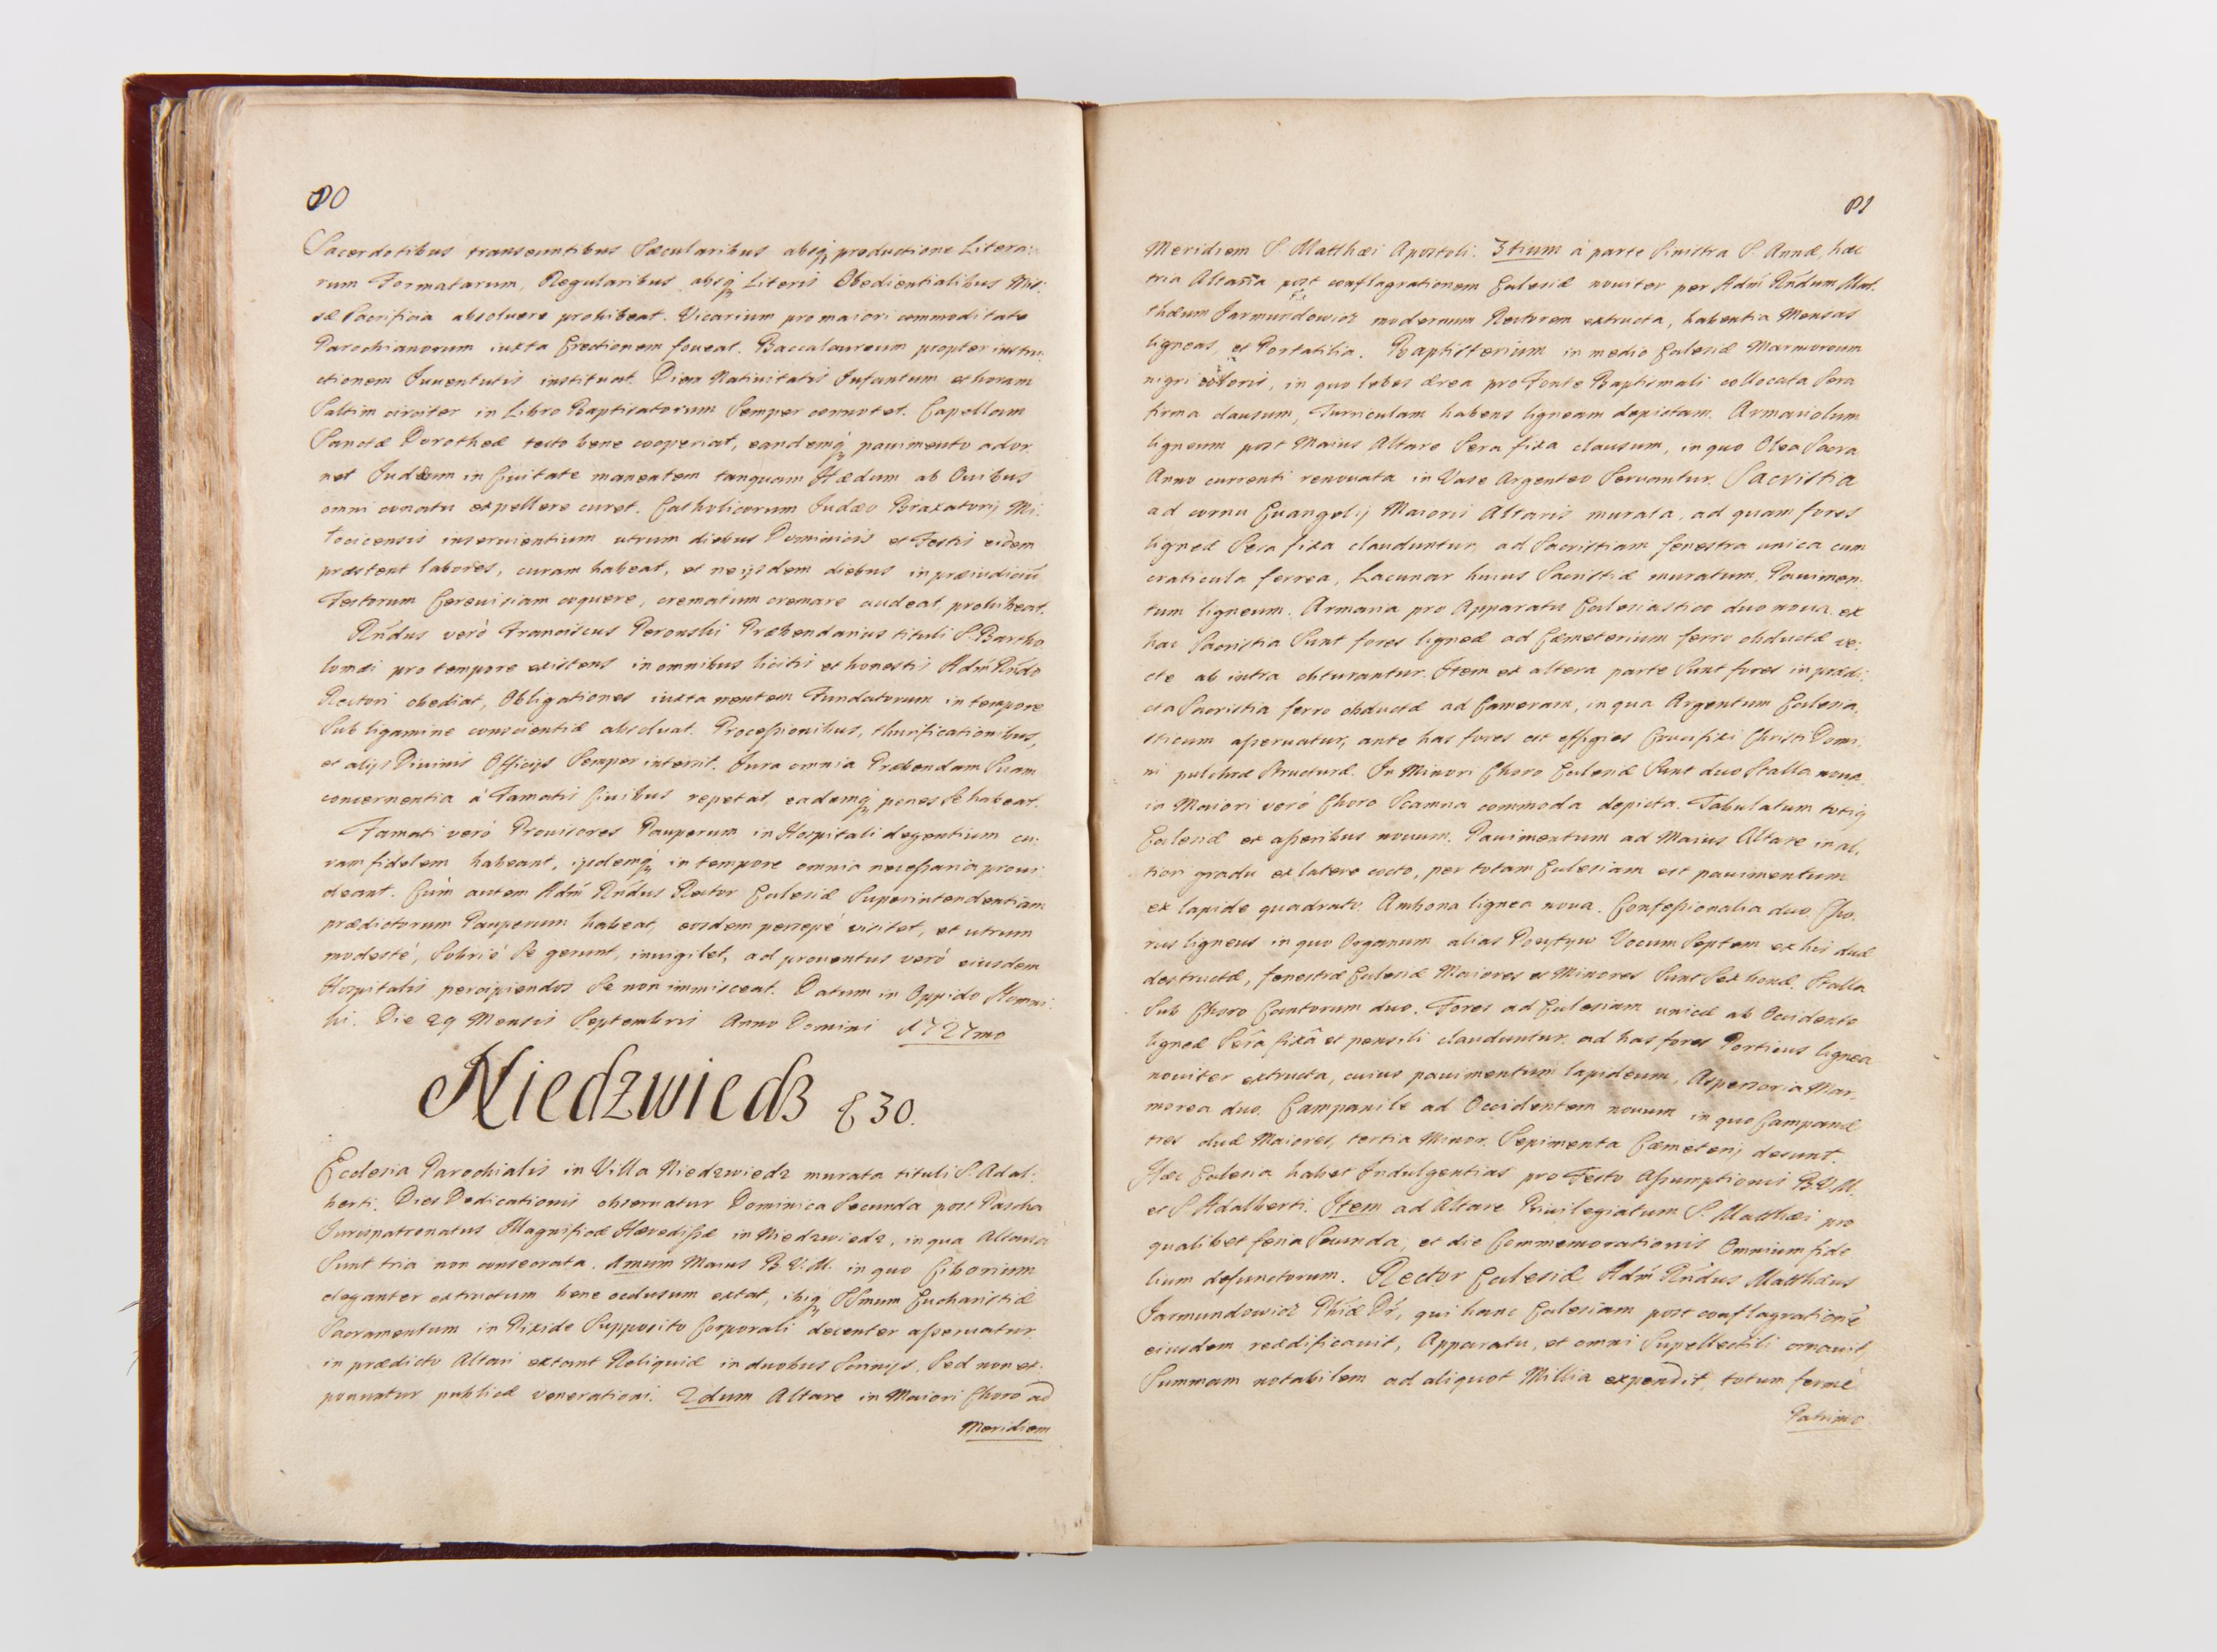 80
Sacerdotibus transeuntibus Sæcularibus absq́ productione Litera-
rum Formatarum, Regularibus absq́ Literis Obedientialibus Mis-
sæ Sacrificia absoluere prohibeat. Vicarium pro maiori commoditate
Parochianorum iuxta Erectionem foueat. Baccalaureum propter instru-
ctionem Juuentutis instituat. Diem Natiuitatis Infantum et horam
Saltim circiter in Libro Baptisatorum Semper connotet. Capellam
Sanctæ Dorotheæ tecto bene cooperiat, eandemq́ pauimento ador-
net Judæum in Ciuitate manentem tanquam Hædum ab Ouibus
omni conatu expellere curet. Catholicorum Judæo Braxatorij Mi-
tocicensis inseruientium utrum diebus Dominicis et Festis eidem
præstent labores, curam habeat, et ne ijsdem diebus in præiudiciū
Festorum Cereuisiam coquere, crematum cremare audeat, prohibeat.
Rńdus verò Franciscus Peronski Præbendarius tituli S. Bartho-
lomæi pro tempore existens in omnibus licitis et honestis Adm̃ Rńdo
Rectori obediat, Obligationes iuxta mentem Fundatorum in tempore
Sub ligamine conscientiæ absoluat. Processionibus, thurificationibus,
et alijs Diuinis Officijs Semper intersit. Jura omnia Præbendam Suam
concernentia à Famatis Ciuibus repetat, eademq́ penes Se habeat.
Famati verò Prouisores Pauperum in Hospitali degentium cu-
ram fidelem habeant, ijsdemq́ in tempore omnia necessaria proui-
deant. Cùm autem Adm̃ Rńdus Rector Ecclesiæ Superintendentiam
prædictorum Pauperum habeat, eosdem persæpè visitet, et utrum
modestè, Sobriè Se gerunt, inuigilet, ad prouentus verò eiusdem
Hospitalis percipiendos Se non immisceat. Datum in Oppido Slomni-
ki. Die 29 Mensis Septembris Anno Domini 1727mo
Niedzwiedz C 30.
Ecclesia Parochialis in Villa Niedzwiedz murata tituli S. Adal-
berti. Dies Dedicationis obseruatur Dominica Secunda post Pascha
Jurispatronatus Magnificæ Hæredissæ in Niedzwiedz, in qua Altaria
Sunt tria non consecrata. 1mum Maius B.V.M. in quo Ciborium
eleganter extructum bene occlusum extat, ibiq́ SSmum Eucharistiæ
Sacramentum in Pixide Supposito Corporali decenter asseruatur
in prædicto Altari extant Reliquiæ in duobus Scrinijs, Sed non ex-
ponuntur publicæ venerationi. 2dum Altare in Maiori Choro ad
Meridiem
81
Meridiem S. Matthæi Apostoli. 3tium à parte Sinistra S. Annæ, hæc
tria Altaria post conflagrationem Ecclesiæ nouiter per Adm̃ Rńdum Mat-
thæum Jarmundowicz modernum Rectorem extructa, habentia Mensas
ligneas, et Portatilia. Baptisterium in medio Ecclesiæ Marmoreum
nigri coloris, in quo lebes ærea pro Fonte Baptismali collocata Sera
firma clausum, Turriculam habens ligneam depictam. Armariolum
ligneum post Maius Altare Sera fixa clausum, in quo Olea Sacra
Anno currenti renouata in Vase Argenteo Seruantur. Sacristia
ad cornu Euangelij Maioris Altaris murata, ad quam fores
ligneæ Sera fixa clauduntur, ad Sacristiam fenestra unica cum
craticula ferrea, Lacunar huius Sacristiæ muratum, Pauimen-
tum ligneum. Armaria pro Apparatu Ecclesiastico duo noua. ex
hac Sacristia Sunt fores ligneæ ad Cæmeterium ferro obductæ ve-
cte ab intra obturantur. Item ex altera parte Sunt fores in prædi-
cta Sacristia ferro obductæ ad Cameram, in qua Argentum Ecclesia-
sticum asseruatur, ante has fores est effigies Crucifixi Christi Domi-
ni pulchræ Structuræ. In Minori Choro Ecclesiæ Sunt duo Stalla noua.
in Maiori verò Choro Scamna commoda depicta. Tabulatum totiq
Ecclesiæ ex asseribus nouum. Pauimentum ad Maius Altare in al-
tiori gradu ex latere cocto, per totam Ecclesiam est pauimentum
ex lapide quadrato. Ambona lignea noua. Confessionalia duo. Cho-
rus ligneus in quo Organum alias Pozytyw Vocum Septem ex his duæ
destructæ, fenestræ Ecclesiæ Maiores et Minores Sunt Sex bonæ. Stalla
Sub Choro Cantorum duo. Fores ad Ecclesiam unicæ ab Occidente
ligneæ Sera fixâ et pensili clauduntur. ad has fores Porticus lignea
nouiter extructa, cuius pauimentum lapideum, Aspersoria Mar-
morea duo. Campanile ad Occidentem nouum in quo Campanæ
tres duæ Maiores, tertia Minor. Sepimenta Cæmeterij desunt.
Hæc Ecclesia habet Indulgentias pro Festo Assumptionis B.V.M.
et S. Adalberti. Item ad Altare Priuilegiatum S. Matthæi pro
qualibet feria Secunda, et die Commemorationis Omnium fide-
lium defunctorum. Rector Ecclesiæ Adm̃ Rńdus Matthæus
Jarmundowicz Phiæ Dr, qui hanc Ecclesiam post conflagrationē
eiusdem reædificauit, Apparatu, et omni Supellectili ornauit,
Summam notabilem ad aliquot Millia expendit, totum fermè
Patrimo